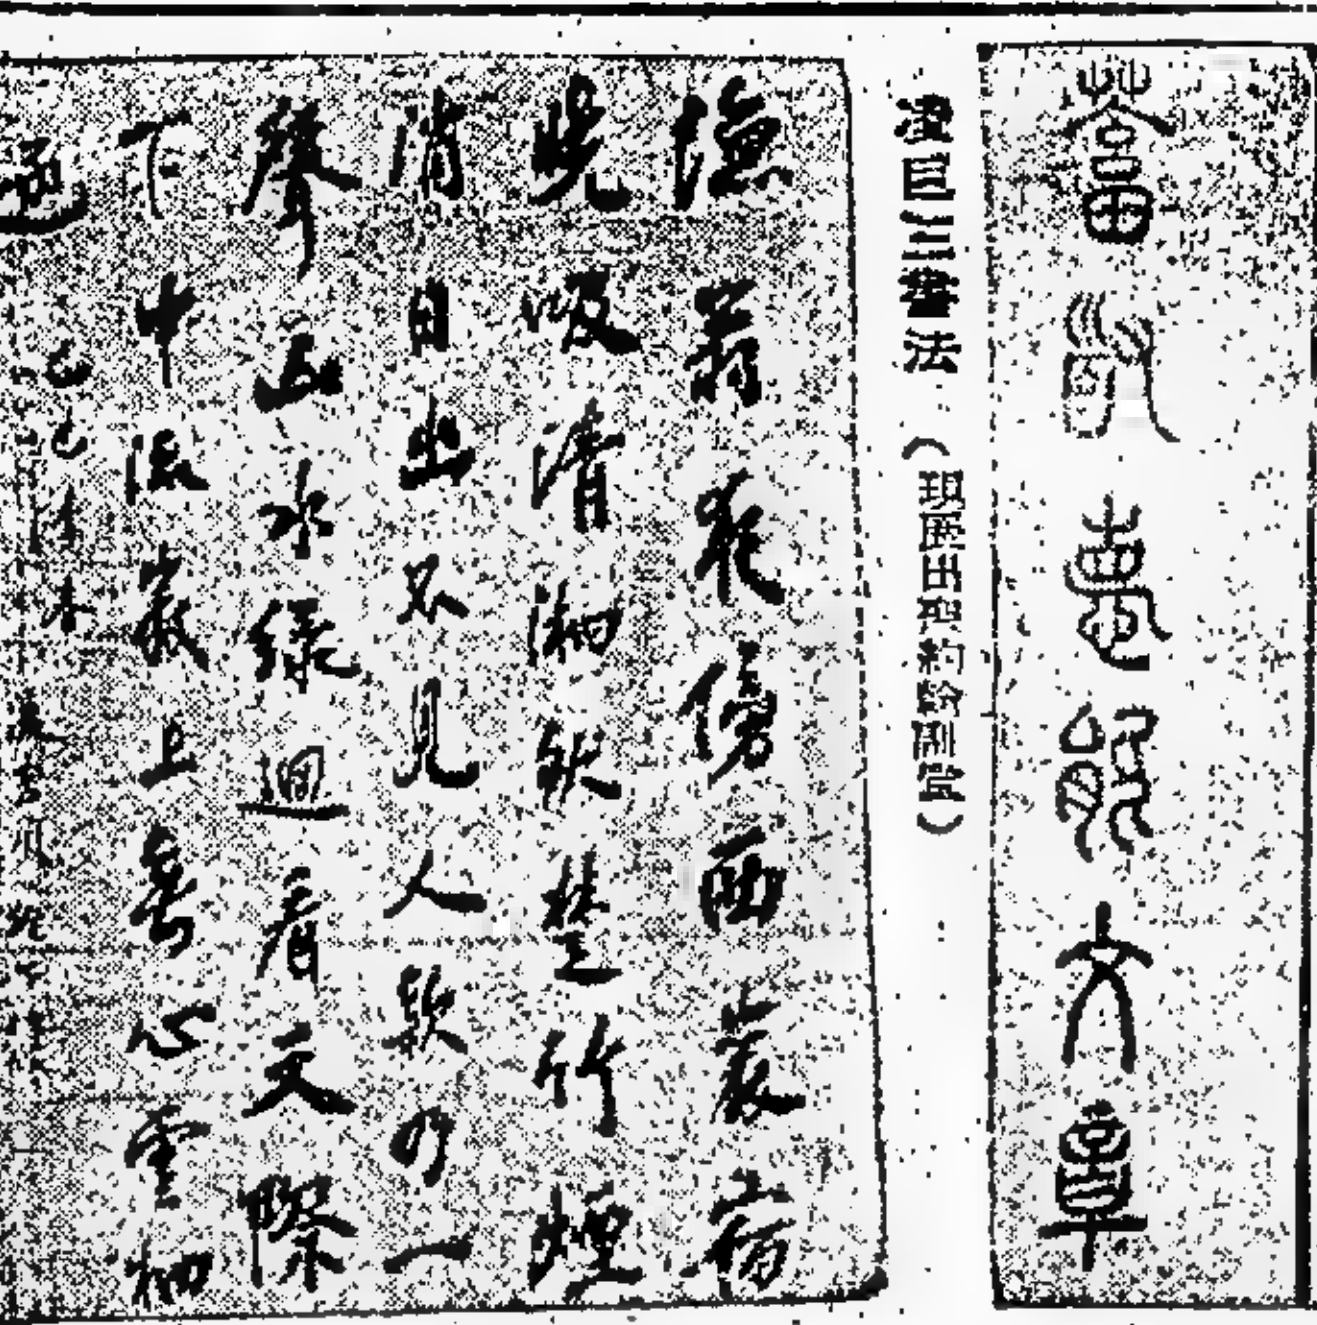 蓄道德能文章
三書法（現展出聖約翰副堂）
漁翁夜傍西巖宿
曉汲清湘然楚竹煙
消日出不見人欸乃一
聲山水綠迴看天際
下中流巖上無心雲相
逐 己巳清